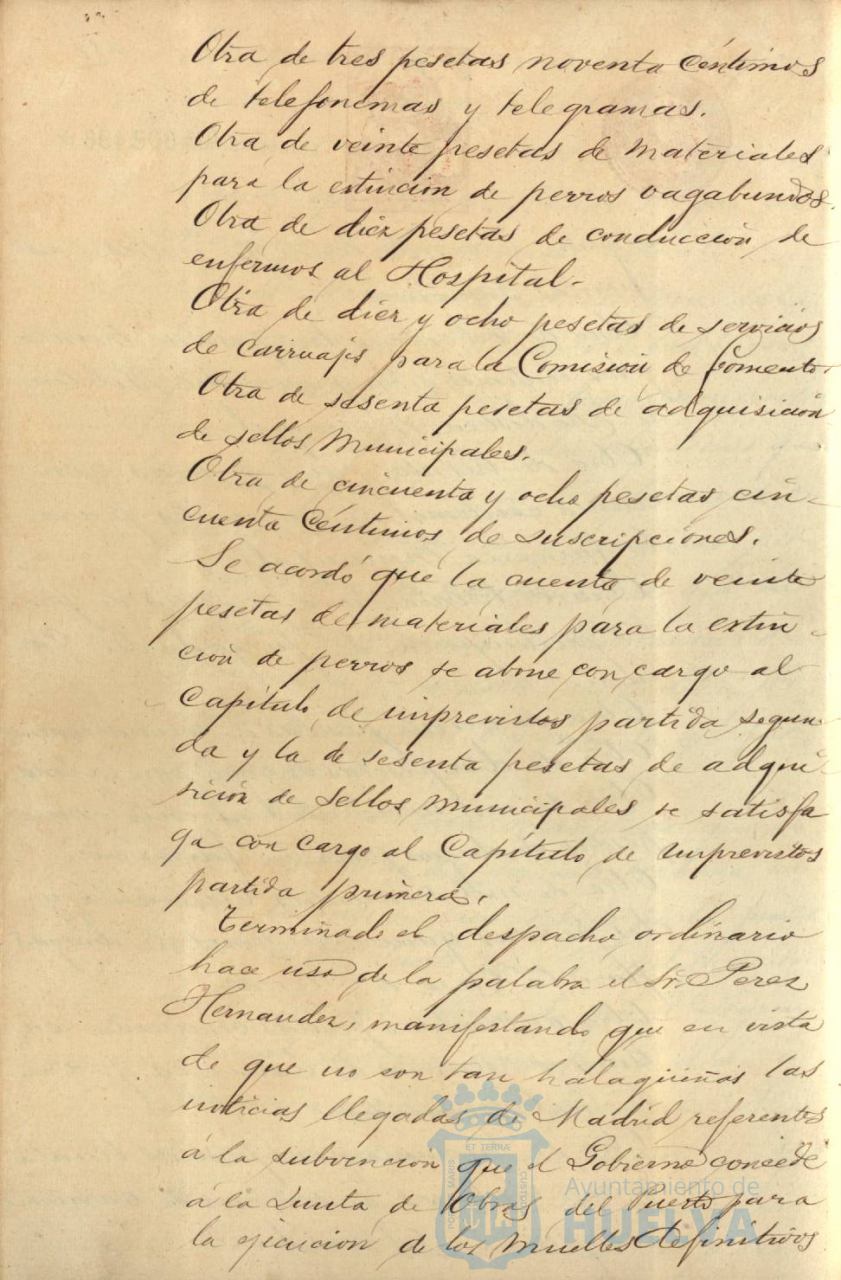 Otra de tres pesetas noventa céntimos
de telefonemas y telegramas.
Otra de veinte pesetas de materiales
para la estincion de perros vagabundos.
Otra de diez pesetas de conducción de
enfermos al Hospital.
Otra de diez y ocho pesetas de servicios
de carruajes para la Comisión de Fomento.
Otra de sesenta pesetas de adquisición
de sellos Municipales.
Otra de cincuenta y ocho pesetas cin-
cuenta céntimos de suscripciones.
Se acordó que la cuenta de veinte
pesetas de materiales para la extin-
ción de perros se abone con cargo al
Capítulo de imprevistos partida segun-
da y la de sesenta pesetas de adqui-
sición de sellos municipales se satisfa
ga con cargo al Capítulo de imprevistos
partida primera.
Terminado el despacho ordinario
hace uso de la palabra el Sr. Perez
Hernandez, manifestando que en vista
de que no son tan halagüeñas las
noticias llegadas de Madrid referentes
á la subvencion que el Gobierno concede
á la Junta de Obras del Puerto para
la ejecucion de los muelles definitivos
Ayuntamiento de
HUELVA